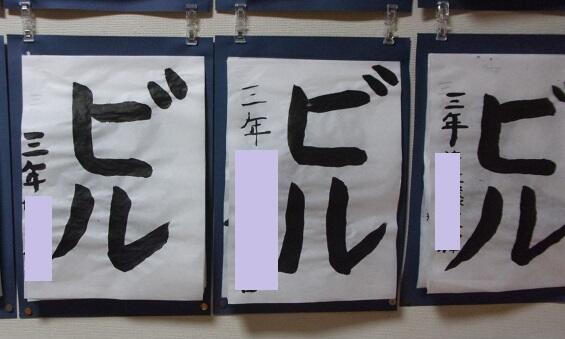 ビル
三年
ビル
三年
ビル
三年